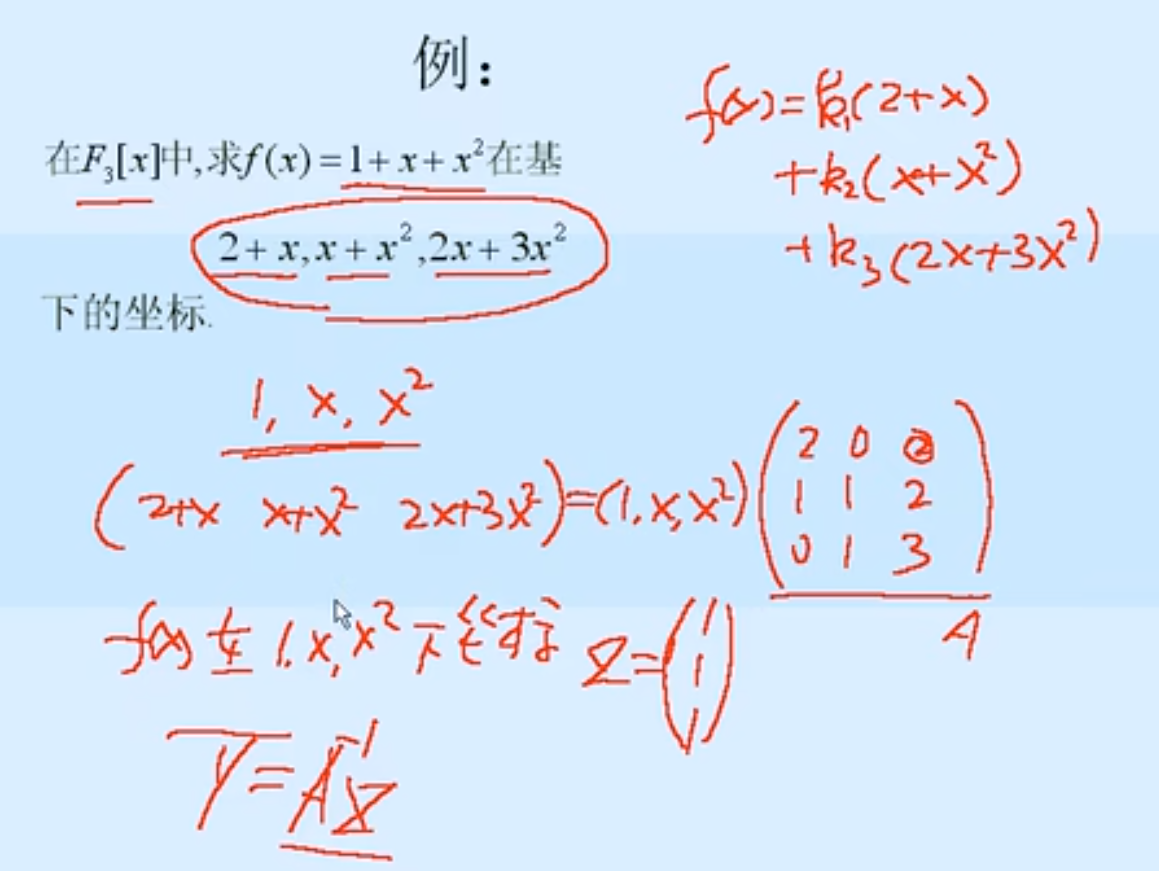 例：
在F₃[x]中,求f(x)=1+x+x²在基
2+x,x+x²,2x+3x²
下的坐标.
f(x)=k₁(2+x)
+k₂(x+x²)
+k₃(2x+3x²)
1, x, x²
(2+x x+x² 2x+3x²)=(1,x,x²)
2 0
1 1 2
0 1 3
A
f(x)在1,x,x²下坐标
=(1
1
1)
Y=A⁻¹X